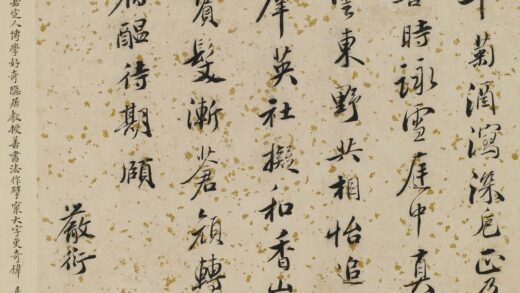 菊酒瀉深巵正
時詠雪庭中真
雲東野共相怡追
羣英社擬和香山
鬢髮漸蒼顏轉
醞待期頤
嚴衍
嘉定人博學好奇隱居教授善書法作擘窠大字更奇偉